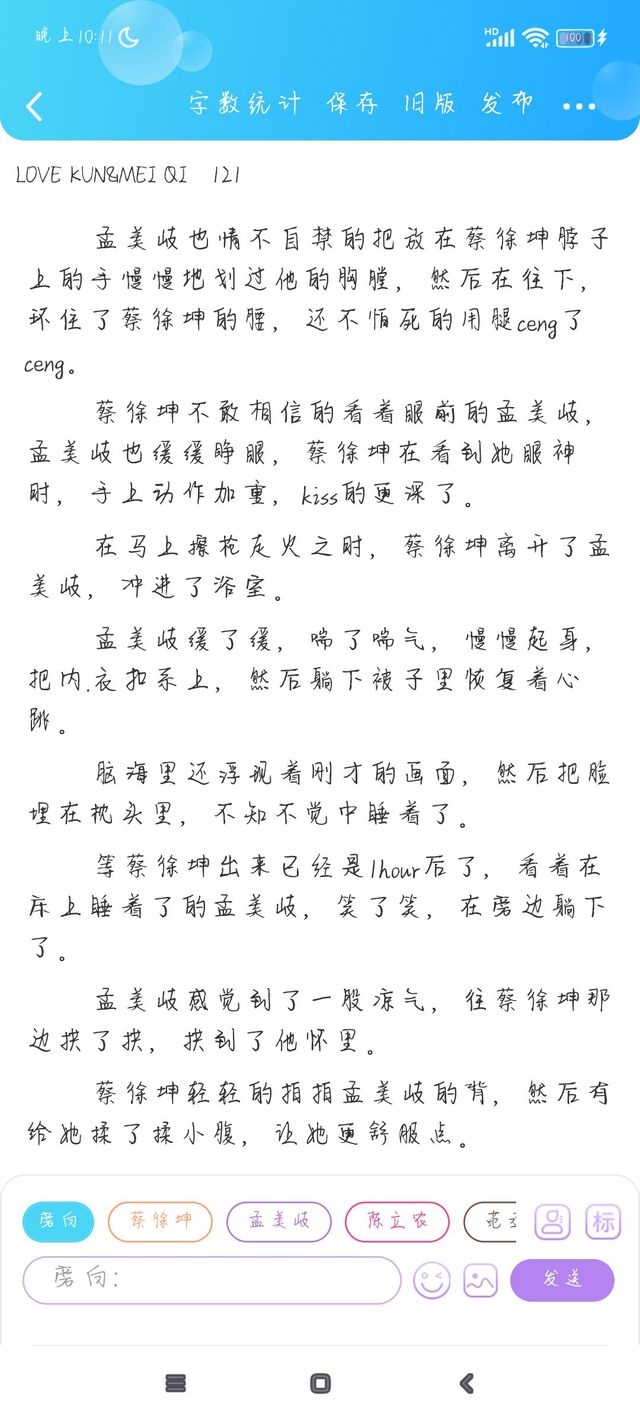 晚上10:11
HD
100
字数统计 保存 旧版 发布
LOVE KUN&MEI QI 121
孟美岐也情不自禁的把放在蔡徐坤脖子
上的手慢慢地划过他的胸膛，然后在往下，
环住了蔡徐坤的腰，还不怕死的用腿ceng了
ceng。
蔡徐坤不敢相信的看着眼前的孟美岐，
孟美岐也缓缓睁眼，蔡徐坤在看到她眼神
时，手上动作加重，kiss的更深了。
在马上擦枪走火之时，蔡徐坤离开了孟
美岐，冲进了浴室。
孟美岐缓了缓，喘了喘气，慢慢起身，
把内.衣扣系上，然后躺下被子里恢复着心
跳。
脑海里还浮现着刚才的画面，然后把脸
埋在枕头里，不知不觉中睡着了。
等蔡徐坤出来已经是1hour后了，看着在
床上睡着了的孟美岐，笑了笑，在旁边躺下
了。
孟美岐感觉到了一股凉气，往蔡徐坤那
边拱了拱，拱到了他怀里。
蔡徐坤轻轻的拍拍孟美岐的背，然后有
给她揉了揉小腹，让她更舒服点。
旁白 蔡徐坤 孟美岐 陈立农 标
旁白： 发送